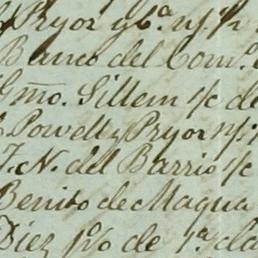 Pryor y Ca. n/. 
Banco del Com.
Gmo. Sillem s/c de
Powell y Pryor n/.
F. N. del Barrio s/c
Benito de Maqua
Diez p% de 1a. cla